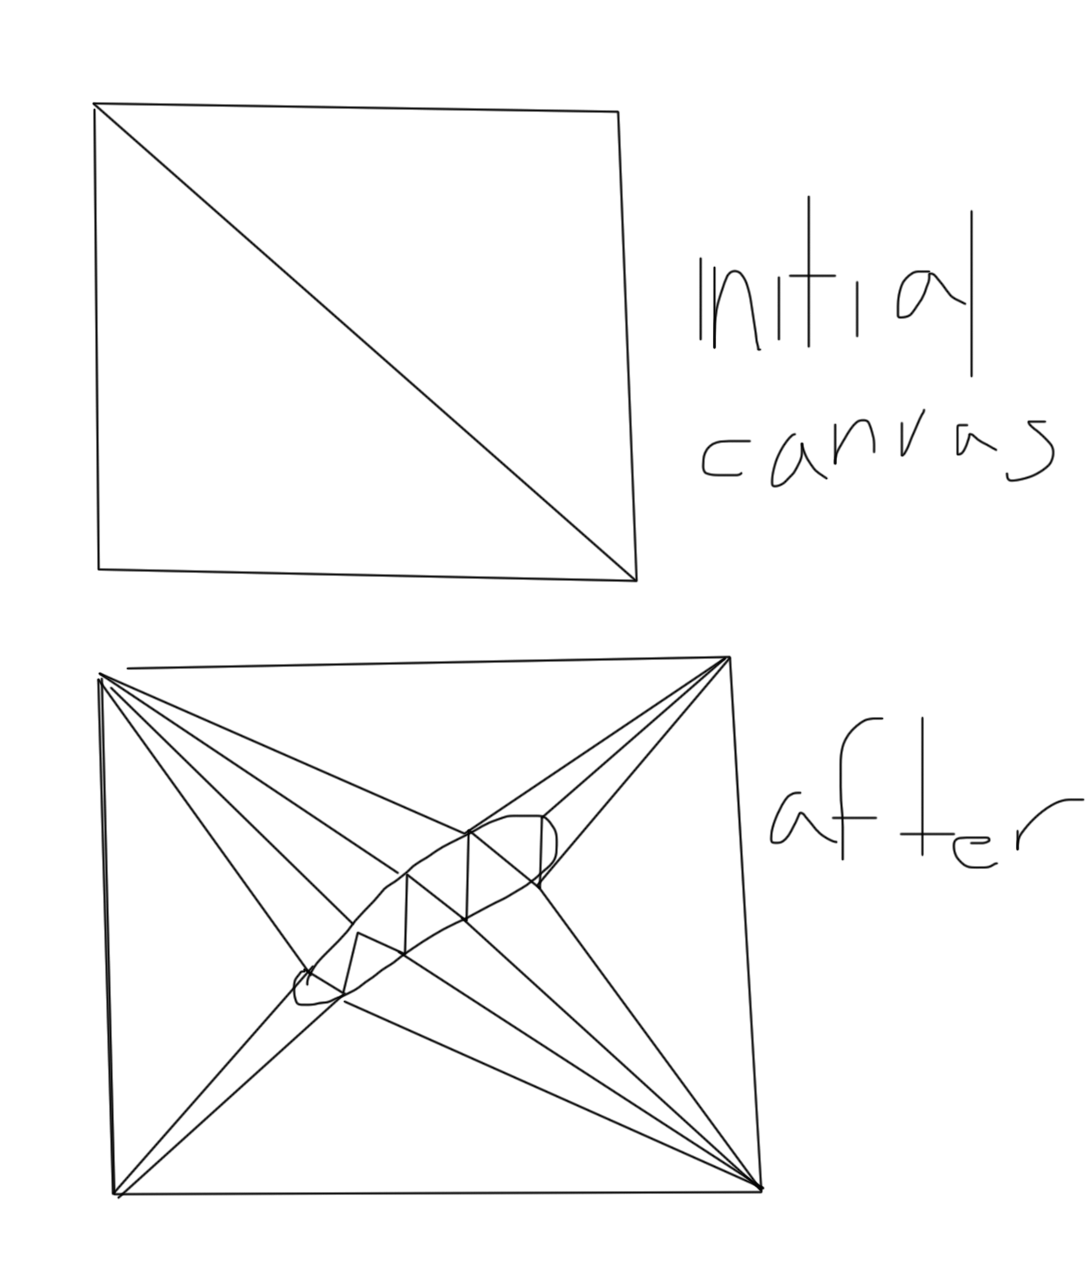 initial
canvas
after